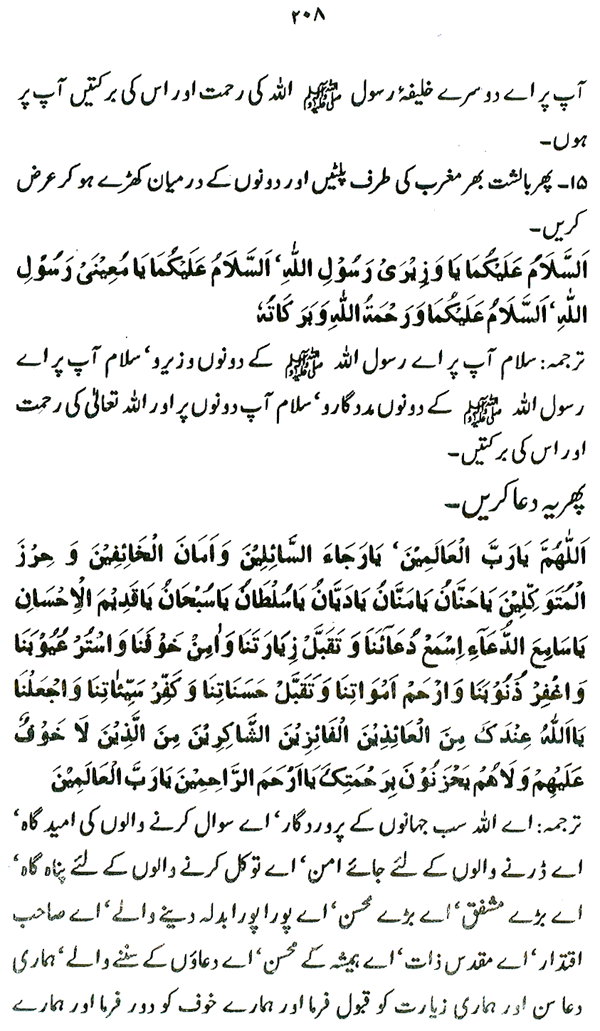 ۲۰۸
آپ پر اے دوسرے خلیفۂ رسول ﷺ اللہ کی رحمت اور اس کی برکتیں آپ پر
ہوں۔
۱۵۔ پھر بالشت بھر مغرب کی طرف پلٹیں اور دونوں کے درمیان کھڑے ہو کر عرض
کریں۔
اَلسَّلَامُ عَلَيْكُمَا يَا وَزِيْرَىْ رَسُوْلِ اللّٰهِ، اَلسَّلَامُ عَلَيْكُمَا يَا مُعِيْنَىْ رَسُوْلِ
اللّٰهِ، اَلسَّلَامُ عَلَيْكُمَا وَرَحْمَةُ اللّٰهِ وَبَرَكَاتُهٗ
ترجمہ: سلام آپ پر اے رسول اللہ ﷺ کے دونوں وزیرو، سلام آپ پر اے
رسول اللہ ﷺ کے دونوں مددگارو، سلام آپ دونوں پر اور اللہ تعالیٰ کی رحمت
اور اس کی برکتیں۔
پھر یہ دعا کریں۔
اَللّٰهُمَّ يَارَبَّ الْعَالَمِيْنَ، يَارَجَاءَ السَّائِلِيْنَ وَاَمَانَ الْخَائِفِيْنَ وَ حِرْزَ
الْمُتَوَكِّلِيْنَ يَاحَنَّانُ يَامَنَّانُ يَادَيَّانُ يَاسُلْطَانُ يَاسُبْحَانُ يَاقَدِيْمَ الْاِحْسَانِ
يَاسَامِعَ الدُّعَآءِ اِسْمَعْ دُعَائَنَا وَ تَقَبَّلْ زِيَارَتَنَا وَ اٰمِنْ خَوْفَنَا وَ اسْتُرْ عُيُوْبَنَا
وَ اغْفِرْ ذُنُوْبَنَا وَ ارْحَمْ اَمْوَاتِنَا وَ تَقَبَّلْ حَسَنَاتِنَا وَ كَفِّرْ سَيِّئَاتِنَا وَ اجْعَلْنَا
يَااَللّٰهُ عِنْدَكَ مِنَ الْعَائِذِيْنَ الْفَائِزِيْنَ الشَّاكِرِيْنَ مِنَ الَّذِيْنَ لَا خَوْفٌ
عَلَيْهِمْ وَلَا هُمْ يَحْزَنُوْنَ بِرَحْمَتِكَ يَااَرْحَمَ الرَّاحِمِيْنَ يَارَبَّ الْعَالَمِيْنَ
ترجمہ: اے اللہ سب جہانوں کے پروردگار، اے سوال کرنے والوں کی امید گاہ،
اے ڈرنے والوں کے لئے جائے امن، اے توکل کرنے والوں کے لئے پناہ گاہ،
اے بڑے مشفق، اے بڑے محسن، اے پورا پورا بدلہ دینے والے، اے صاحب
اقتدار، اے مقدس ذات، اے ہمیشہ کے محسن، اے دعاؤں کے سننے والے، ہماری
دعا سن اور ہماری زیارت کو قبول فرما اور ہمارے خوف کو دور فرما اور ہمارے